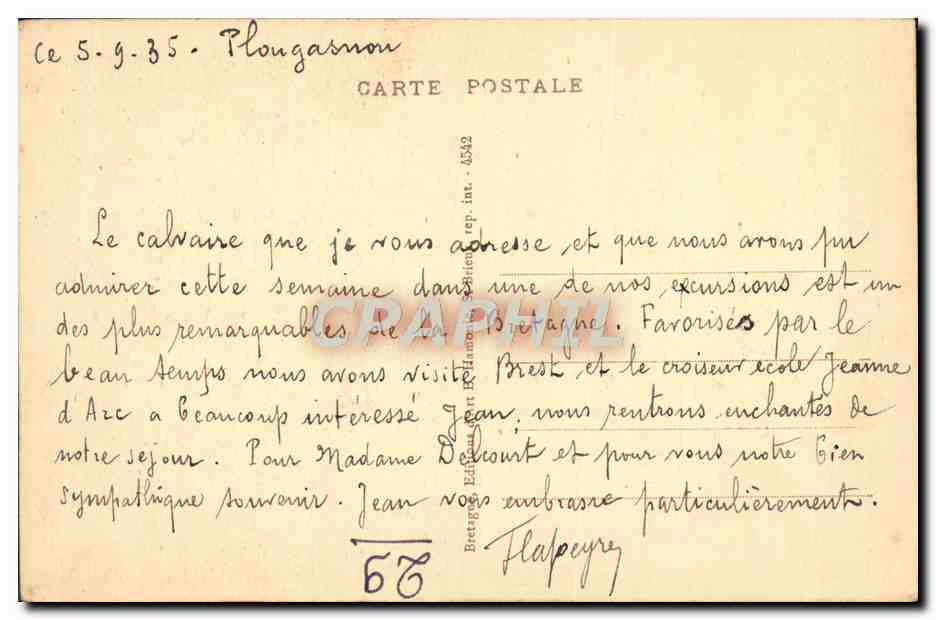 Ce 5-9-35. Plougasnou
CARTE POSTALE
Le calvaire que je vous adresse et que nous avons pu
admirer cette semaine dans une de nos excursions est un
des plus remarquables de la Bretagne. Favorisés par le
beau temps nous avons visité Brest et le croiseur école Jeanne
d'Arc a beaucoup intéressé Jean, nous rentrons enchantés de
notre séjour. Pour Madame Delcourt et pour vous notre bien
sympathique souvenir. Jean vous embrasse particulièrement.
Flapeyre
Bretagne, Editions d'art Hamonic, St-Brieuc, rep. int. - 4542
29
CPAPHIL